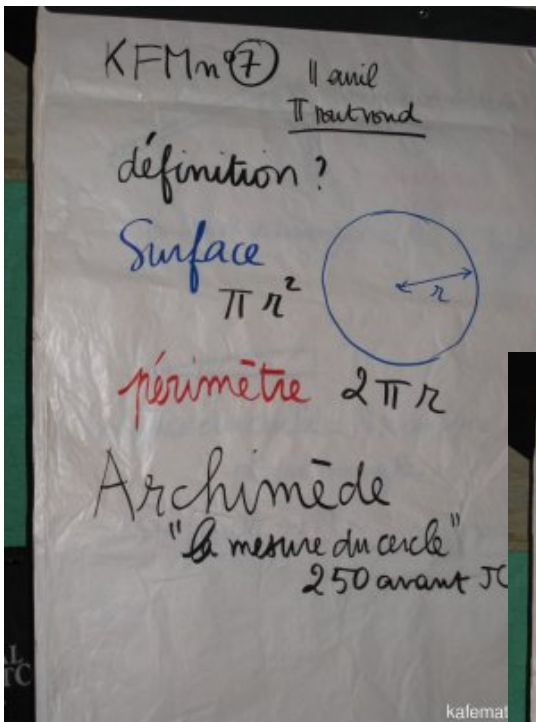 KFM n° 7
11 avril
π tout rond
définition ?
Surface
π r²
r
périmètre 2 π r
Archimède
"la mesure du cercle"
250 avant JC
TC
kafemat